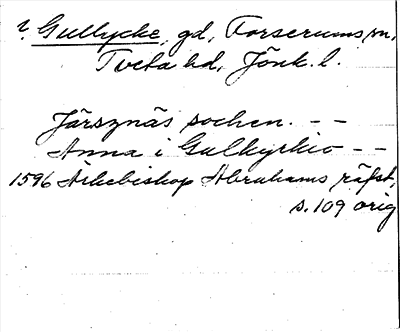 ? Gullycke, gd, Forserums sn,
Tveta hd, Jönk. l.
Järsznäs sochen. - -
Anna i Gulkyrkio - -
1596 Ärkebiskop Abrahams räfst,
s. 109 orig